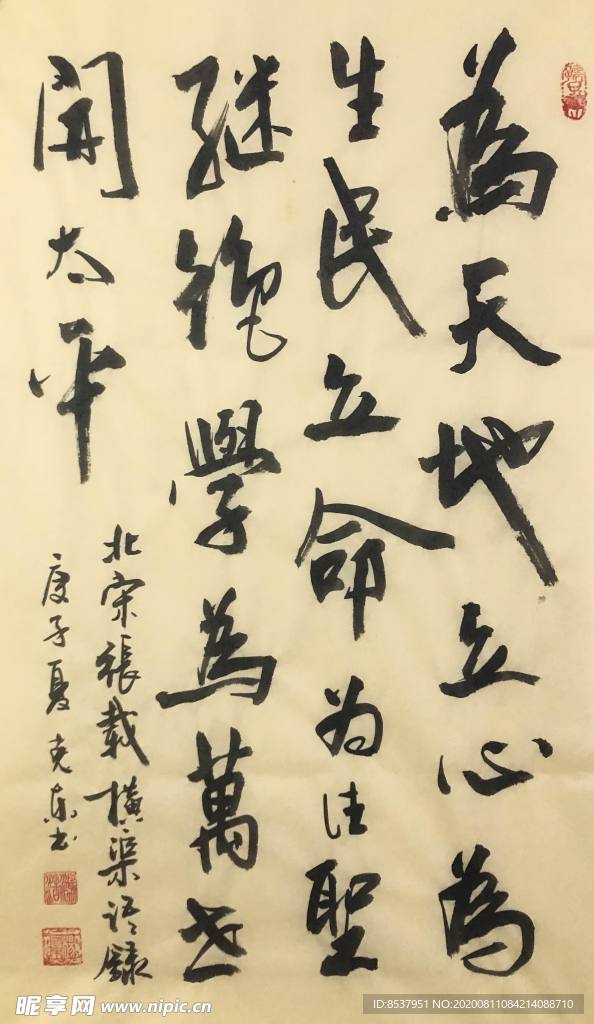 為天地立心為
生民立命為往聖
继绝學為萬世
開太平
北宋張載橫渠语錄
庚子夏克东书
昵享网 www.nipic.cn
ID:8537951 NO:20200811084214088710